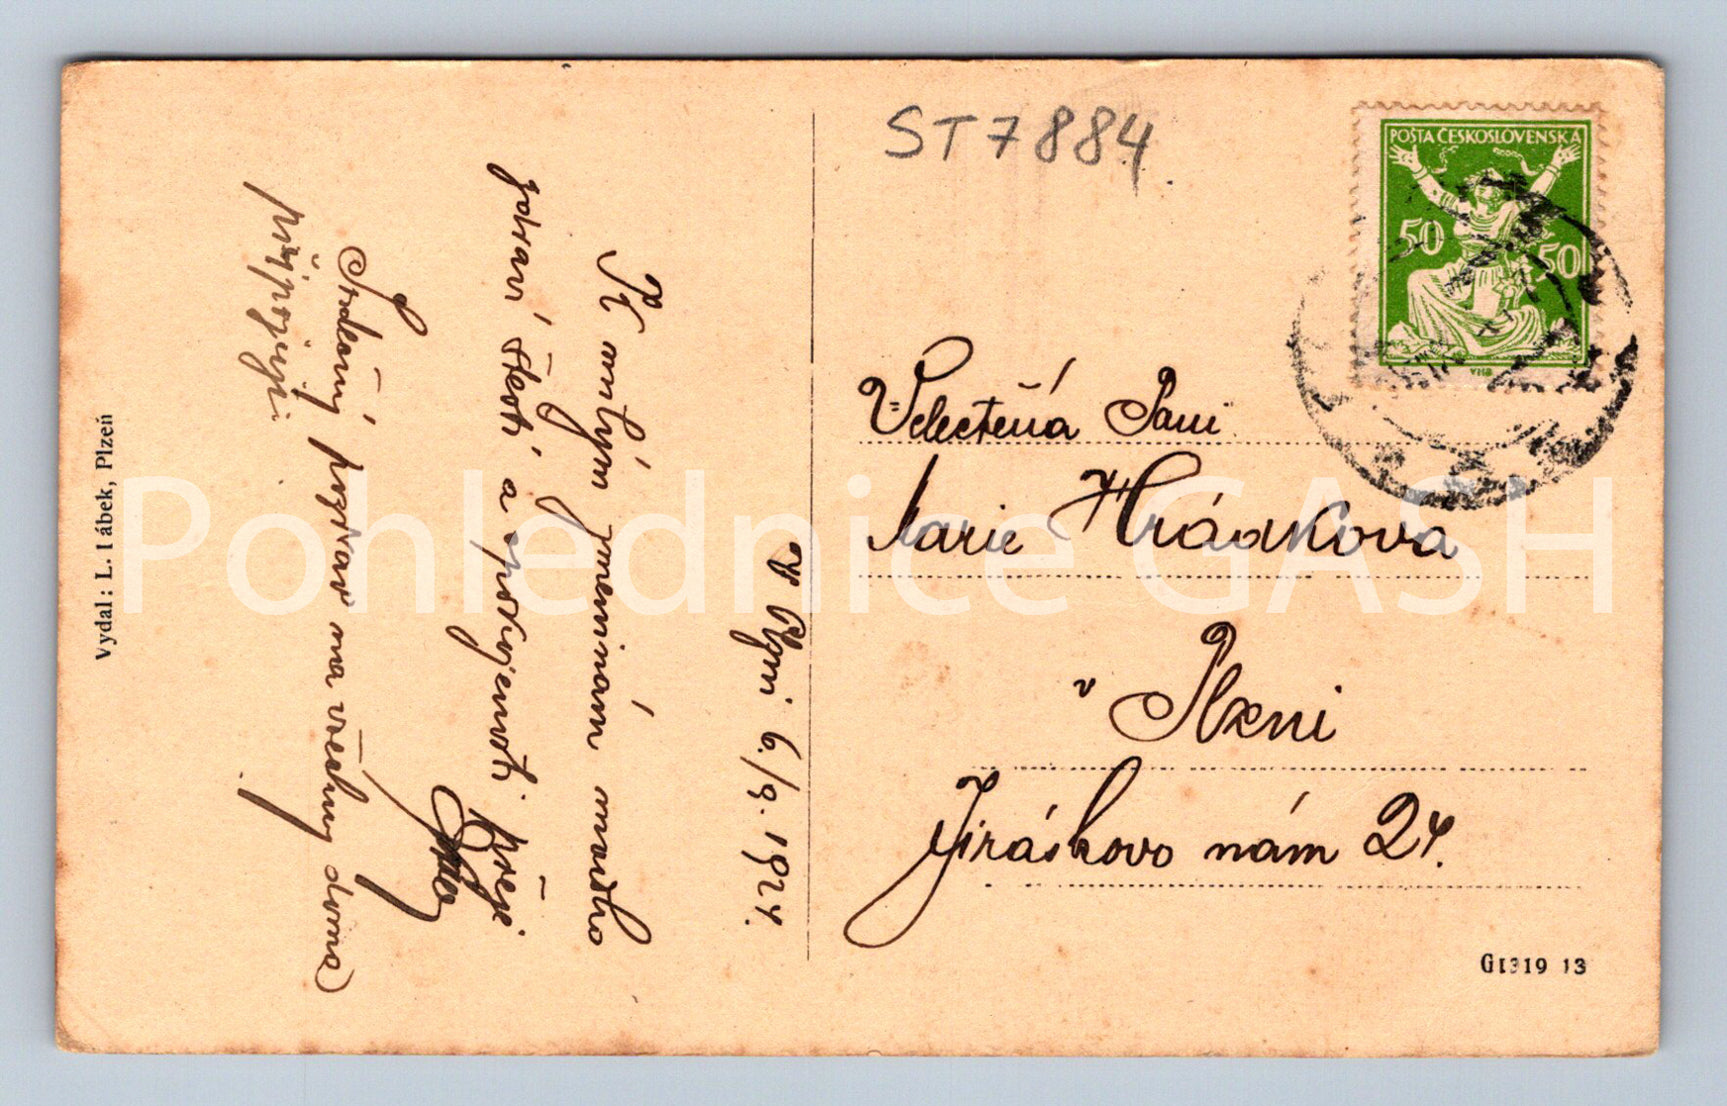 ST 7884
POŠTA ČESKOSLOVENSKÁ
50
50
V Plzni 6./9. 1924.
K milým jmeninám mnoho
zdraví štěstí a spokojenosti přeje
Srdečný pozdrav na všechny doma
připojuji.
Velectěná Paní
Marie Hrádková
v Plzni
Jiráskovo nám 24.
Vydal: L. Lábek, Plzeň
G1319 13
Pohlednice GASH